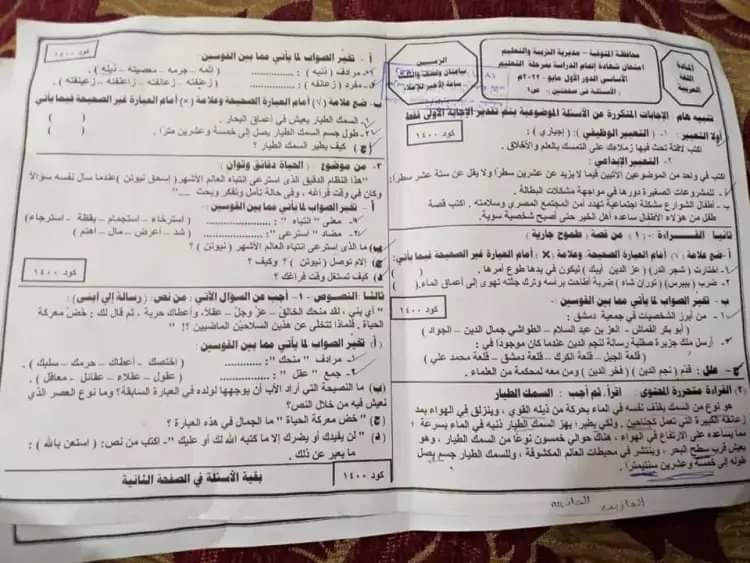 المادة
اللغة
العربية
محافظة المنوفية - مديرية التربية والتعليم
امتحان شهادة إتمام الدراسة بمرحلة التعليم
الأساسى الدور الأول مايو ٢٠٢٢م
الأسئلة فى صفحتين - ص١
الزمــــن
ساعتان ونصف
تنبيه هام الإجابات المتكررة عن الأسئلة الموضوعية يتم تقدير الإجابة الأولى فقط
كود ١٤٠٠
أولاً التعبير : ١- ( التعبير الوظيفي ) ( إجباري ) :
اكتب لافتة تحث فيها زملاءك على التمسك بالعلم والأخلاق .
٢- التعبير الإبداعي :
اكتب في واحد من الموضوعين الآتيين فيما لا يزيد عن عشرين سطراً ولا يقل عن ستة عشر سطراً:
أ- للمشروعات الصغيرة دورها في مواجهة مشكلات البطالة .
ب - أطفال الشوارع مشكلة اجتماعية تهدد أمن المجتمع المصري وسلامته . اكتب قصة
طفل من هؤلاء الأطفال ساعده أهل الخير حتى أصبح شخصية سوية .
ثانيا القراءة :- ١- من قصة ( طموح جارية )
أ- ضع علامة ( √ ) أمام العبارة الصحيحة، وعلامة ( × ) أمام العبارة غير الصحيحة فيما يأتي:
١- اختارت ( شجر الدر ) ( عز الدين أيبك ) ليكون في يدها طوع أمرها . ( )
٢- ضرب ( بيبرس ) ( توران شاه ) ضربة أطاحت برأسه وترك جثته تهوى إلى أعماق الماء. ( )
ب - تخير الصواب لما يأتي مما بين القوسين :-
كود ١٤٠٠
١- من أبرز الشخصيات في جمعية دمشق :
( أبو بكر القماش - العز بن عبد السلام - الطواشي جمال الدين - الجواد )
٢- أرسل ملك جزيرة صقلية رسالة لنجم الدين عندما كان موجوداً في :
( قلعة الجبل - قلعة الكرك - قلعة دمشق - قلعة محمد علي )
ج - علل : قدّم ( نجم الدين ) ( فخر الدين ) ومن معه لمحكمة من العلماء .
(٢) القراءة متحررة المحتوى : اقرأ، ثم أجب : السمك الطيار
هو نوع من السمك يقذف نفسه في الماء بحركة من ذيله القوي ، وينزلق في الهواء يمد
زعانفه الكبيرة التي تعمل كجناحين . ولكي يطير، يهز السمك الطيار ذنبه في الماء بسرعة ؛
مما يساعده على الارتفاع في الهواء . هناك حوالي خمسون نوعًا من السمك الطيار ، وهو
يعيش قرب سطح البحر ، وينتشر في محيطات العالم المكشوفة ، وللسمك الطيار جسم يصل
طوله إلى خمسة وعشرين سنتيمتراً .
أ - تخيَّر الصواب لما يأتي مما بين القوسين :
كود ١٤٠٠
١- مرادف ( ذنبه ) : ............ ( إثمه - جرمه - معصيته - ذيله ).
٢- مفرد ( زعانفه ) : ............ ( زعيفته - زعانفته - زاعنفته - زعنفته ).
ب- ضع علامة ( √ ) أمام العبارة الصحيحة وعلامة ( × ) أمام العبارة غير الصحيحة فيما يأتي
١- السمك الطيار يعيش في أعماق البحار . ( )
٢- طول جسم السمك الطيار يصل إلى خمسة وعشرين مترا . ( )
( ج ) - كيف يطير السمك الطيار ؟
٣- من موضوع : ( الحياة دقائق وثوان )
"هذا النظام الدقيق الذي استرعى انتباه العالم الأشهر ( إسحق نيوتن ) عندما سأل نفسه سؤالاً
وكان في وقت فراغه ، وفي حالة تأمل وتفكر وبحث ....."
أ - تخير الصواب لما يأتي مما بين القوسين:-
١- معنى " انتباه " : ............ ( استرخاء - استجمام - يقظة - استرجاء )
٢- مضاد " استرعى " : ............ ( شد - أعرض - مال - اهتم )
( ب ) ما الذي استرعى انتباه العالم الأشهر ( نيوتن ) ؟
( ج ) إلام توصل ( نيوتن ) ؟ وكيف ؟
( د ) كيف تستغل وقت فراغك ؟
كود ١٤٠٠
ثالثا: النصوص - ١- أجب عن السؤال الآتي : من نص: ( رسالة إلى ابنى )
" أي بني ، لقد منحك الخالق- عزّ وجلّ - عقلاً، وأعطاك حرية ، ثم قال لك : خض معركة
الحياة . فلماذا تتخلى عن هذين السلاحين الماضيين ؟! "
( أ ): تخيّر الصواب لما يأتي مما بين القوسين
١- مرادف " منحك " : ............ ( اختصك - أعطاك - حرمك - سلبك ) .
٢- جمع " عقل " : ............ ( عقول - عقلاء - عقائل - معاقل ) .
( ب ) ما النصيحة التي أراد الأب أن يوجهها لولده في العبارة السابقة؟ وما نوع العصر الذي
نعيش فيه من خلال النص؟
( ج ) " خض معركة الحياة " ما الجمال في هذه العبارة ؟
( د ) " لن يفيدك أو يضرك إلا ما كتبه الله لك أو عليك "- اكتب من نص: ( استعن بالله ) :
ما يعبر عن ذلك .
كود ١٤٠٠
بقية الأسئلة في الصفحة الثانية